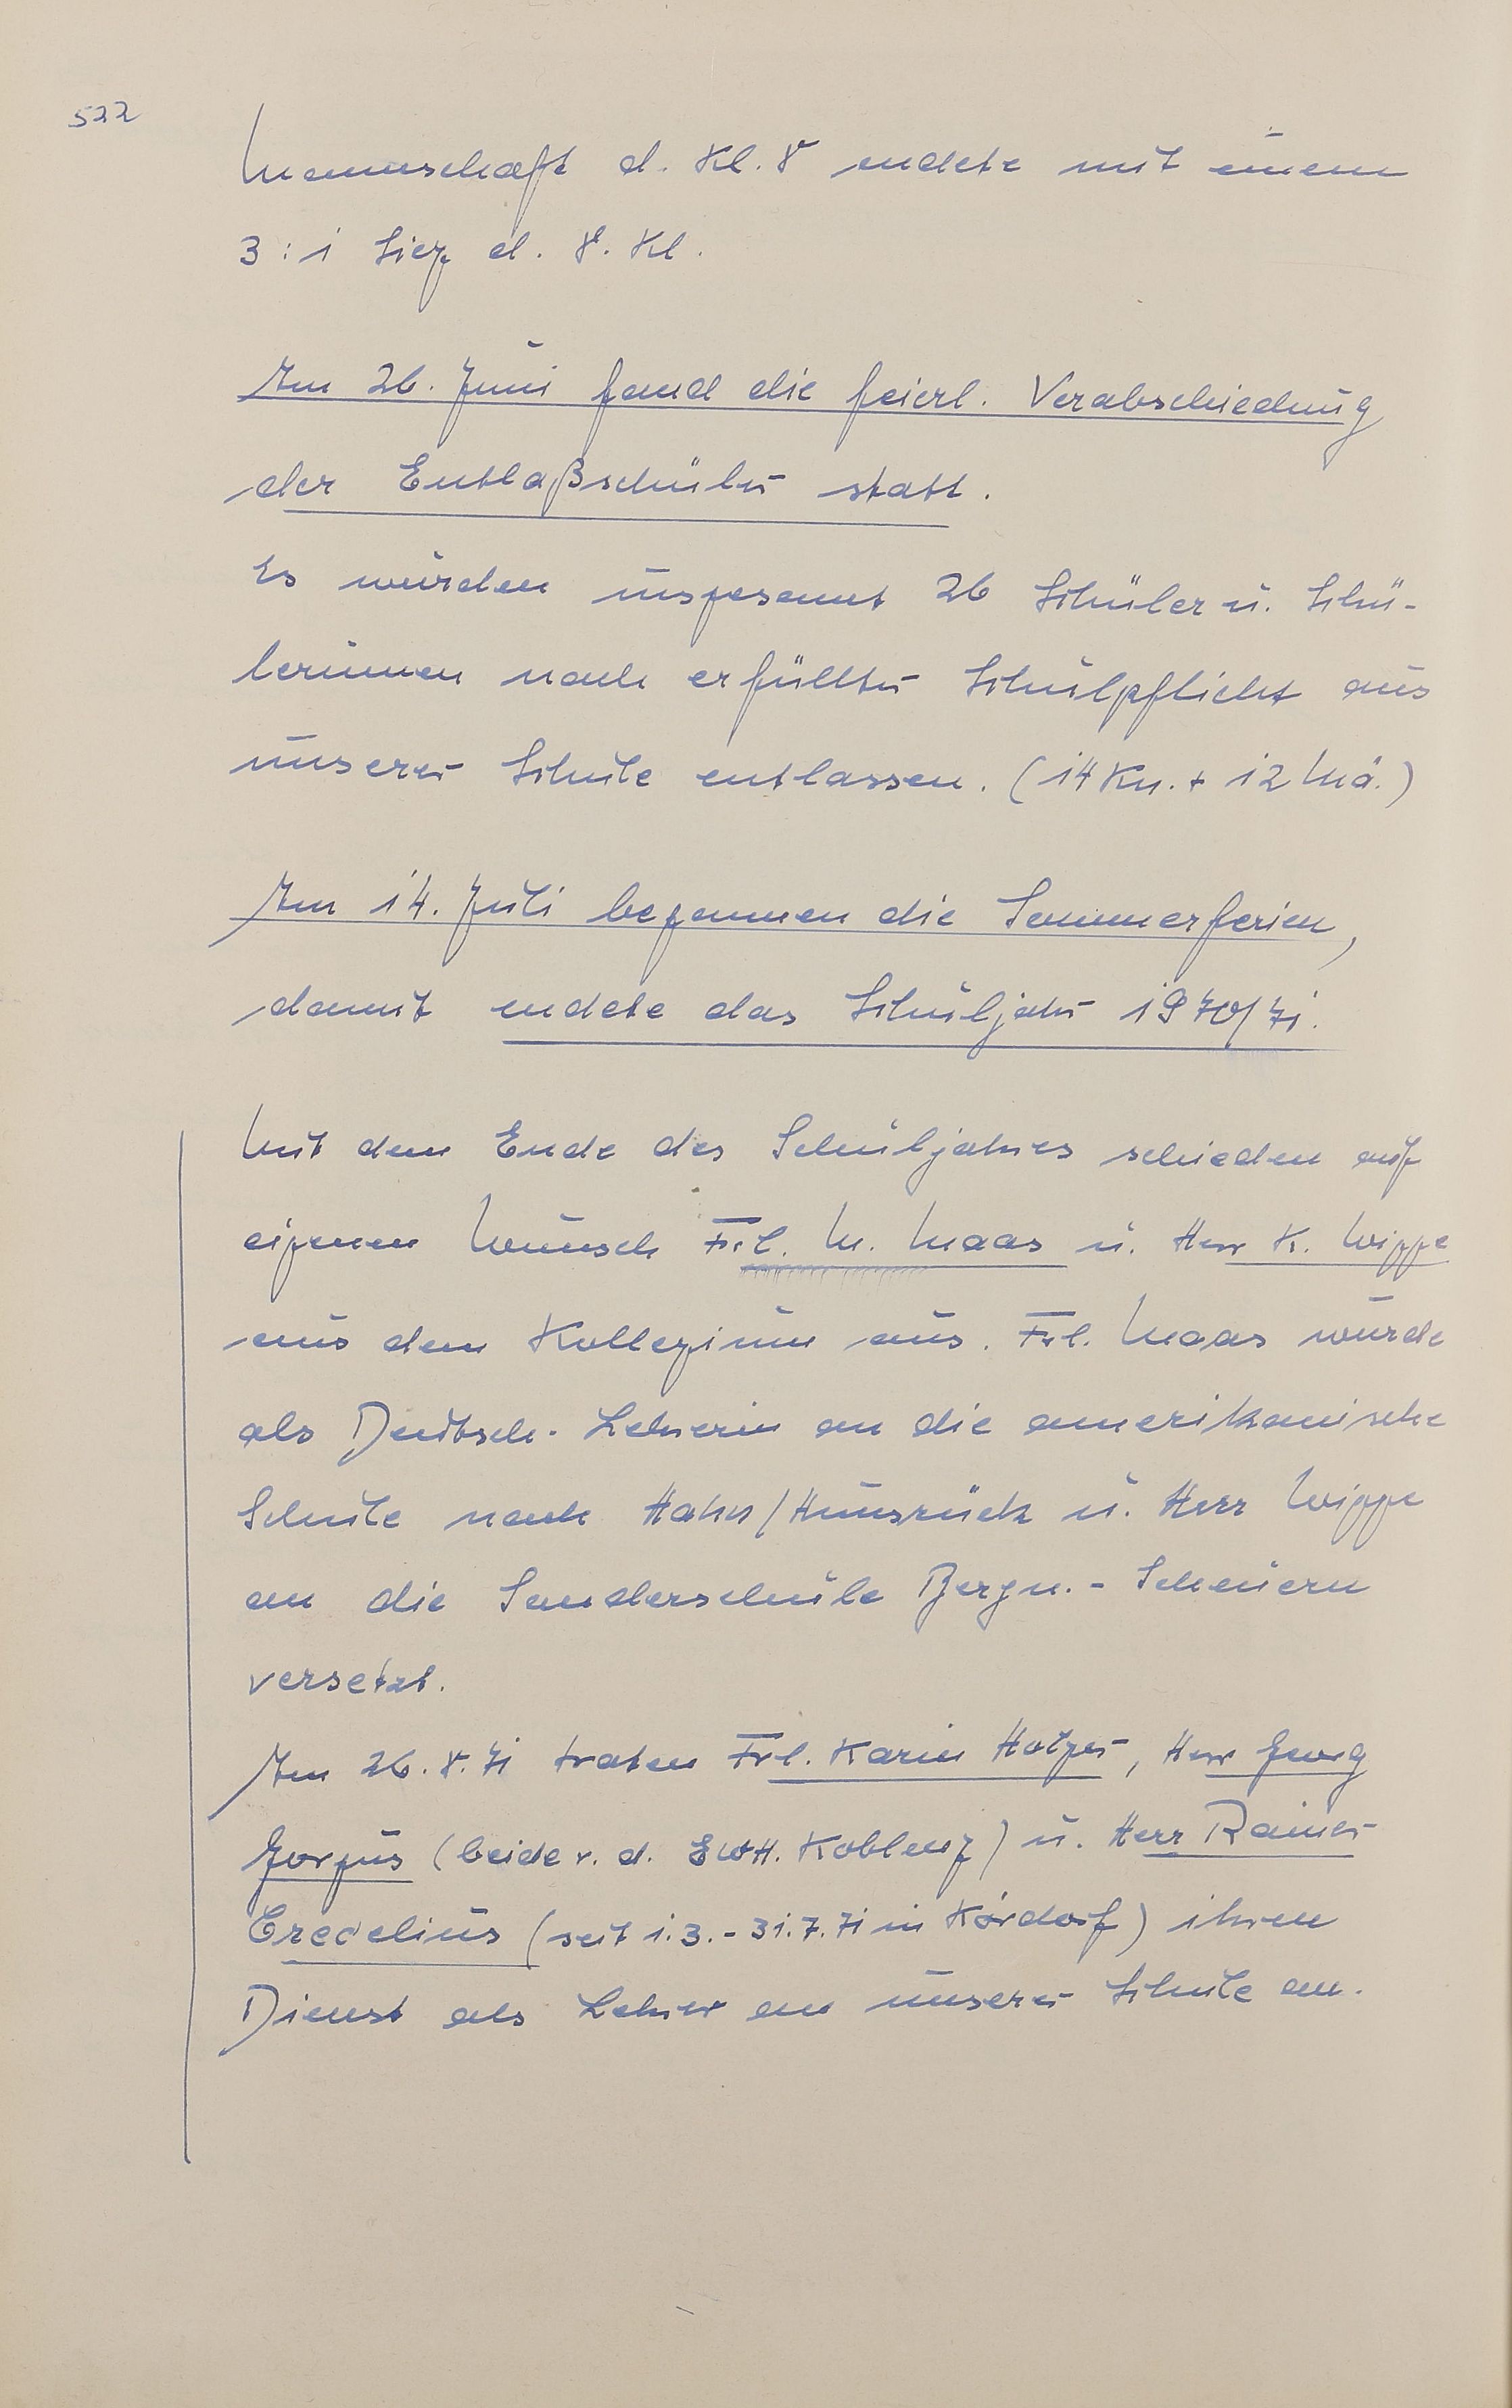 522
Mannschaft d. Kl. 8 endete mit einem
3:1 Sieg d. 8. Kl.
Am 26. Juni fand die feierl. Verabschiedung
der Entlaßschüler statt.
Es wurden insgesamt 26 Schüler u. Schü-
lerinnen nach erfüllter Schulpflicht aus
unserer Schule entlassen. (14 Kn. + 12 Mä.)
Am 14. Juli begannen die Sommerferien,
damit endete das Schuljahr 1970/71.
Mit dem Ende des Schuljahres schieden auf
eigenen Wunsch Frl. M. Maas u. Herr K. Wippe
aus dem Kollegium aus. Frl. Maas wurde
als Deutsch-Lehrerin an die amerikanische
Schule nach Hahn/Hunsrück u. Herr Wippe
an die Sonderschule Bergn.-Scheuern
versetzt.
Am 26.8.71 traten Frl. Karin Holzer, Herr Georg
(beide v. d. EWH. Koblenz) u. Herr Rainer
Credelius (seit 1.3.-31.7.71 in Kördorf) ihren
Dienst als Lehrer an unserer Schule an.